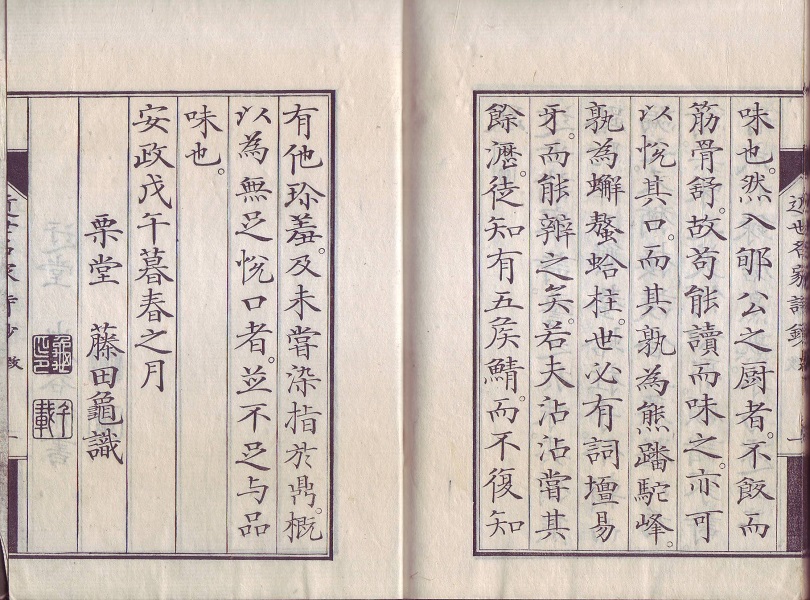 味也。然入郇公之厨者。不飯而
筋骨舒。故苟能讀而味之。亦可
以悅其口。而其孰為熊蹯駝峰。
孰為蠏螯蛤柱。世必有詞壇易
牙。而能辨之矣。若夫沾沾嘗其
餘瀝。徒知有五矦鯖。而不復知
有他珎羞。及未嘗染指於鼎。概
以為無足悅口者。並不足与品
味也。
安政戊午暮春之月
栗堂 藤田龜識
近世名家詩鈔
近世名家詩鈔
千載